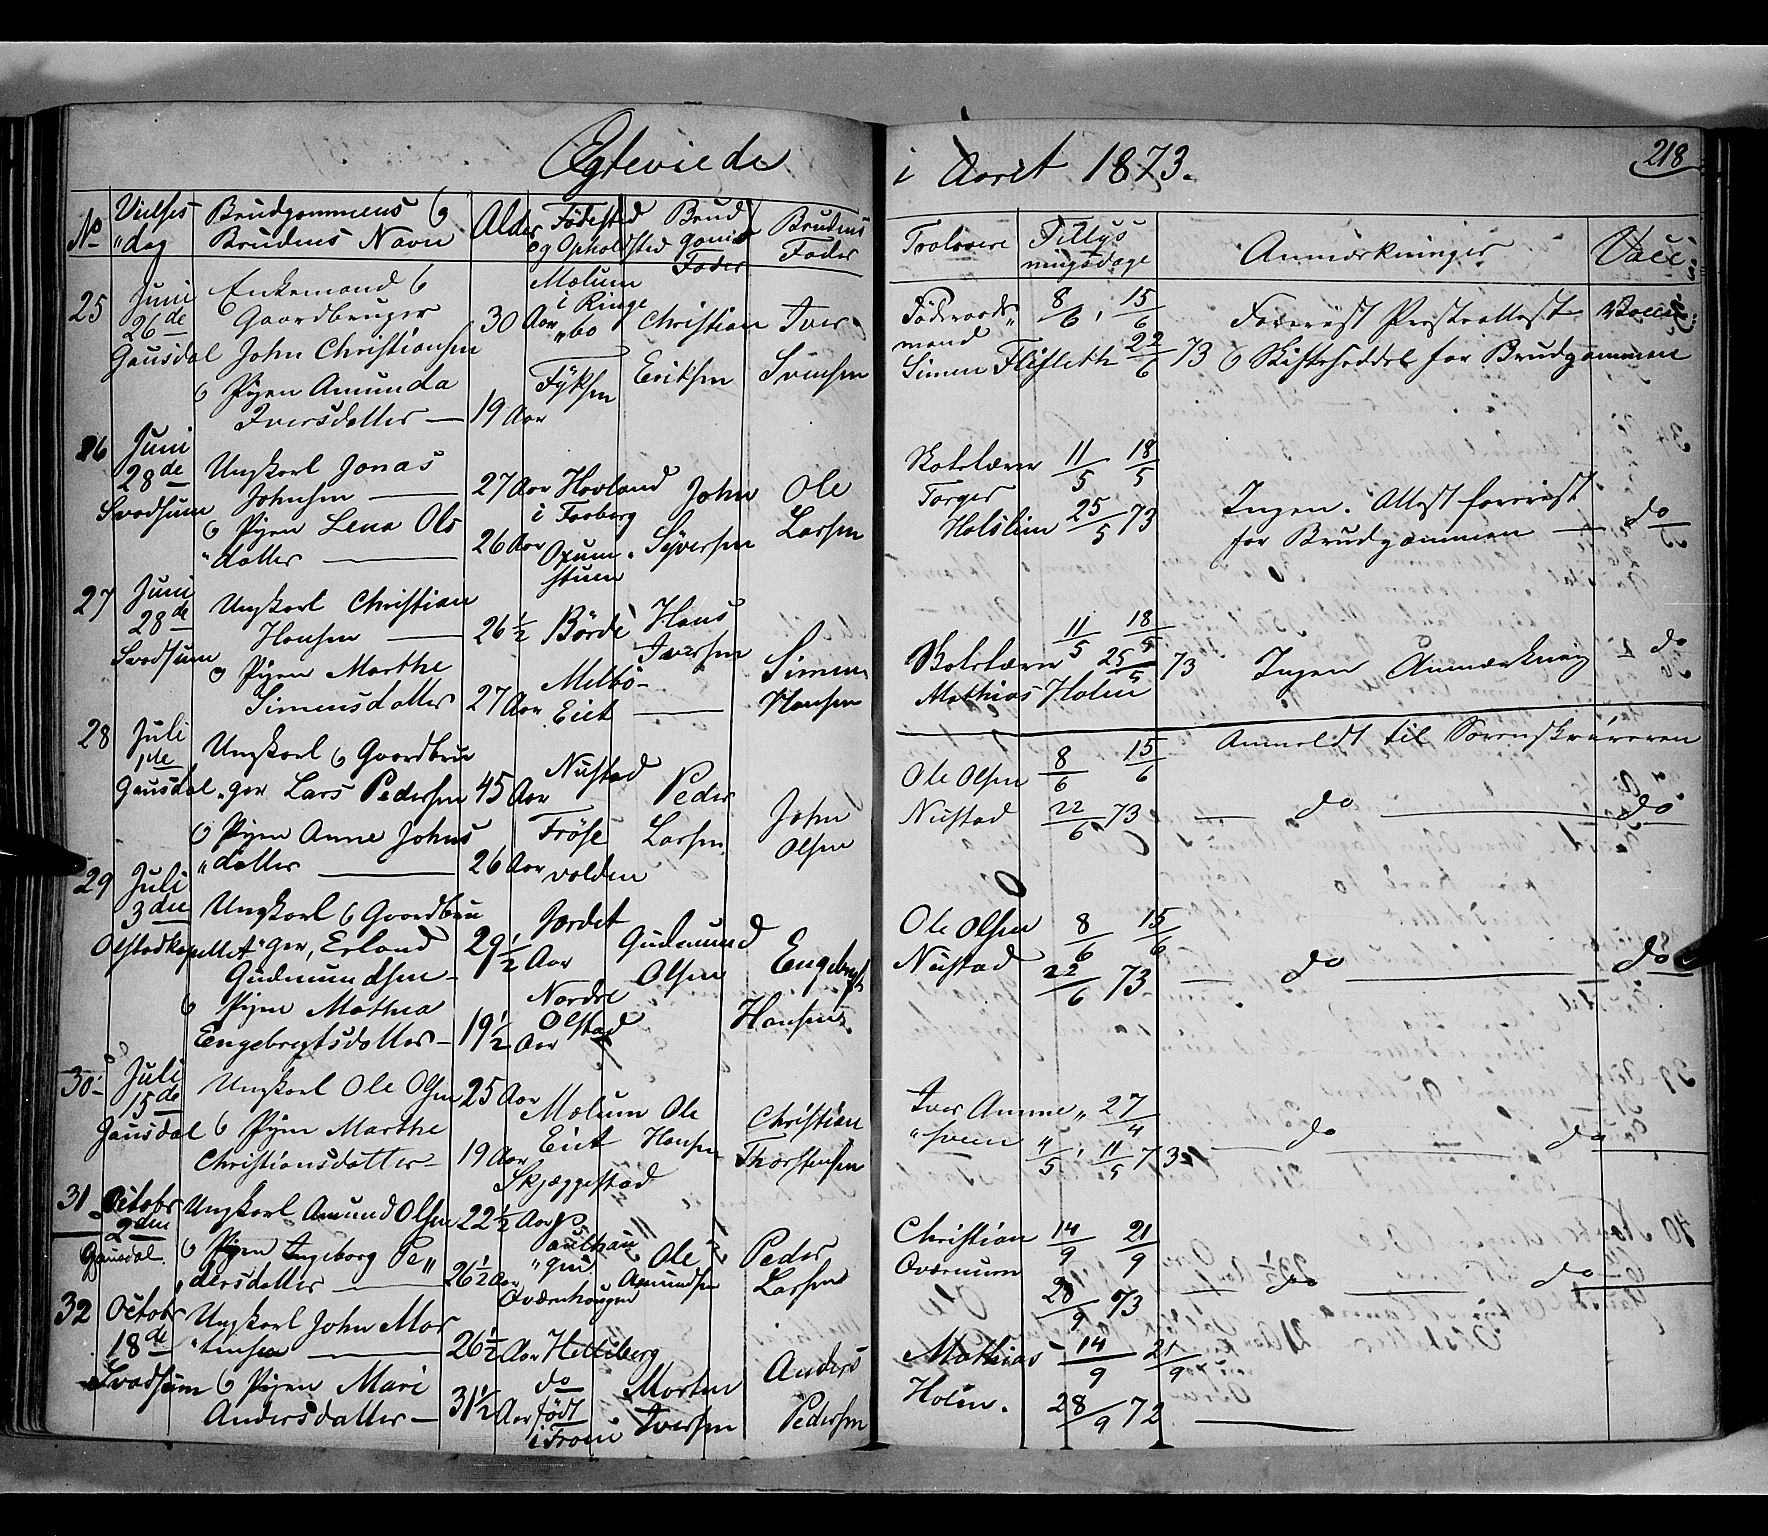 Ægteviede i Aaret 1873.
218
No Vielses Brudgommens & Alder Fødested Brud Brudens
"dag Brudens Navn og Opholdsted goms Fader
Fader
Trolovere Tillys Anmærkninger Vacc
ningsdage
25 Juni 26de Gausdal
Enkemand &
Gaardbruger
John Christiansen
& Pigen Amunda
Iversdatter —
30 Aar
19 Aar
Mælum
i Ringe
"bo
Fyksen
Christian
Eriksen
Iver
Svensen
Föderaads"
mand
Simen Flifleth
8/6, 15/6
22/6 73
Forevist Præsteattest
& Skifteseddel for Brudgommen
26 Juni 28de Svadsum
Ungkarl Jonas
Johnsen —
& Pigen Lena Ols
"datter —
27 Aar
26 Aar
Hovland
i Faaberg
stuen
John
Syversen
Ole
Larsen
Skolelærer
Torger
Holslien
11/5 18/5
25/5 73
Ingen. Attest forevist
for Brudgommen —
do
27 Juni 28de Svadsum
Ungkarl Christian
Hansen —
& Pigen Marthe
Simensdatter
26 1/2
27 Aar
Börde
Melbö-
Eiet —
Hans
Iversen
Simen
Hansen
Skolelærer
Mathias Holen
11/5 18/5
25/5 73
Ingen Anmærkning
do
Anmeldt til Sorenskriveren
28 Juli 1de Gausdal
Ungkarl & Gaardbru
"ger Lars Pedersen
& Pigen Anne Johns
"datter —
45 Aar
26 Aar
Nustad
Fröse
volden
Peder
Larsen
John
Olsen
Ole Olsen
Nustad
8/6 15/6
22/6 73
— do — do
29 Juli 3die Olstadkapellet
Ungkarl & Gaardbru
"ger, Erland
Gudmundsen —
& Pigen Mathea
Engebregtsdatter —
29 1/2 Aar
19 1/2 Aar
Jordet
Nordre
Olstad
Gudmund
Olsen
Engebregt
Hansen
Ole Olsen
Nustad
8/6 15/6
22/6 73
— do — do
30 Juli 15de Gausdal
Ungkarl Ole Olsen
& Pigen Marthe
Christiansdatter —
25 Aar
19 Aar
Mælum
Eiet
Skjæggestad
Ole
Hansen
Christian
Thorstensen
Iver Amme"
"sveen
27/4
4/5, 11/5 73
— do — do
31 Octobr 2den Gausdal
Ungkarl Amund Olsen
& Pigen Ingeborg Pe"
"dersdatter —
22 1/2 Aar
26 1/2 Aar
Paulhau
"gen
Oværnhaugen
Ole
Amundsen
Peder
Larsen
Christian
Oværnurn
14/9 21/9
28/9 73
— do — do
32 Octobr 18de Svadsum
Ungkarl John Mor
"tensen —
& Pigen Mari
Andersdatter —
26 1/2 Aar
31 1/2 Aar
Helleberg
do
født
i Fron
Morten
Iversen
Anders
Pedersen
Mathias
Holen.
14/9 21/9
28/9 72